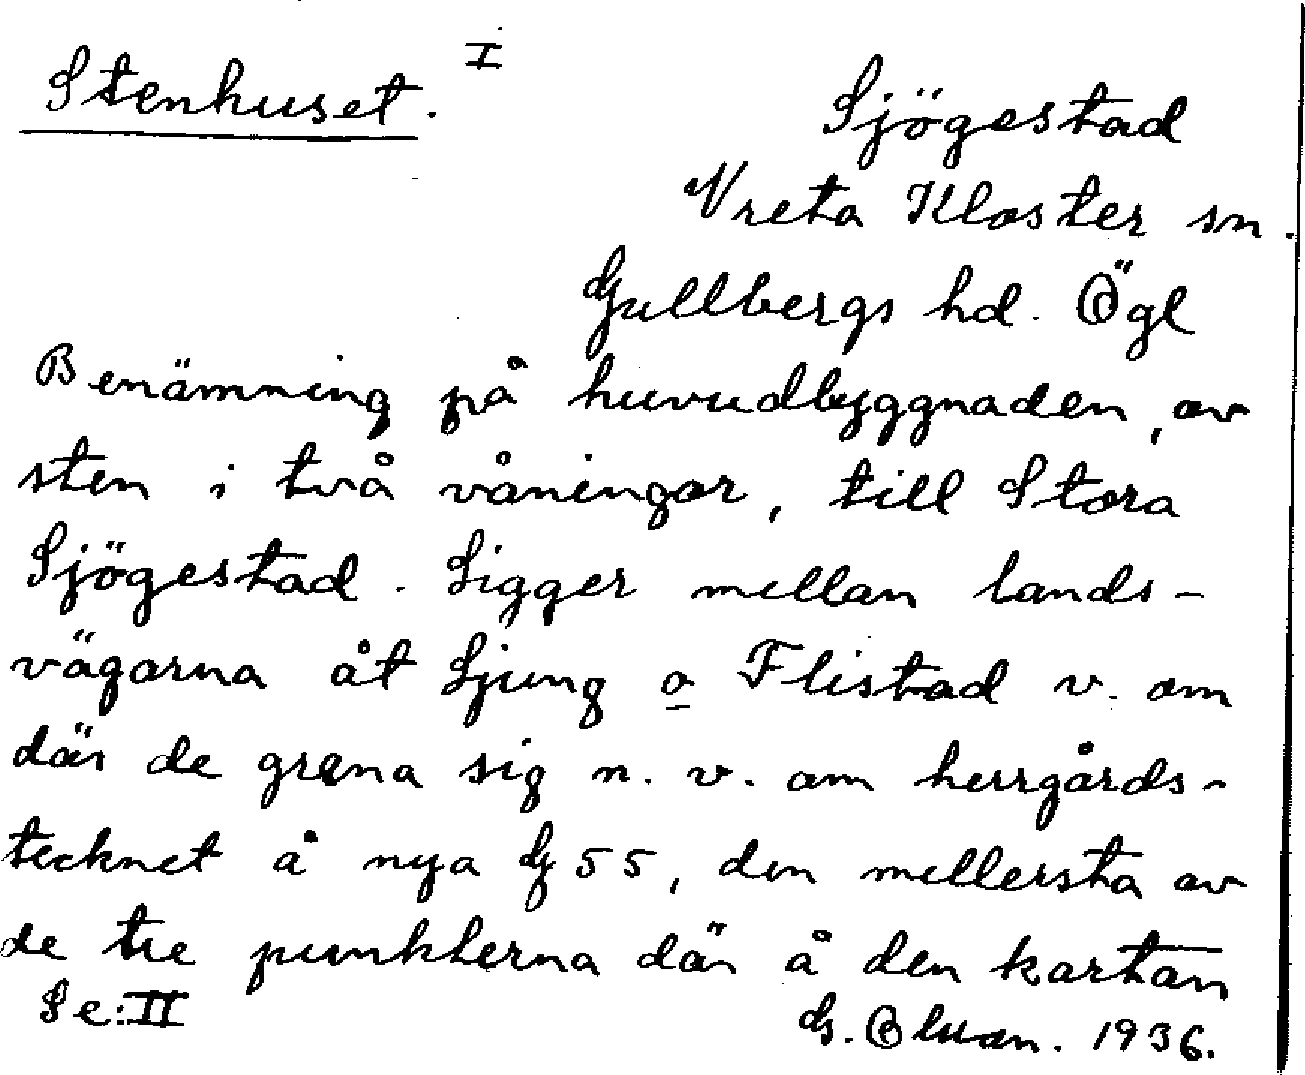 Stenhuset. I
Sjögestad
Vreta Kloster sn.
Gullbergs hd. Ögl
Benämning på huvudbyggnaden, av
sten i två våningar, till Stora
Sjögestad. Ligger mellan lands-
vägarna åt Ljung o Flistad v. om
där de grena sig n. v. om herrgårds-
tecknet å nya G 55, den mellersta av
de tre punkterna där å den kartan
Se: II
G. 1936.